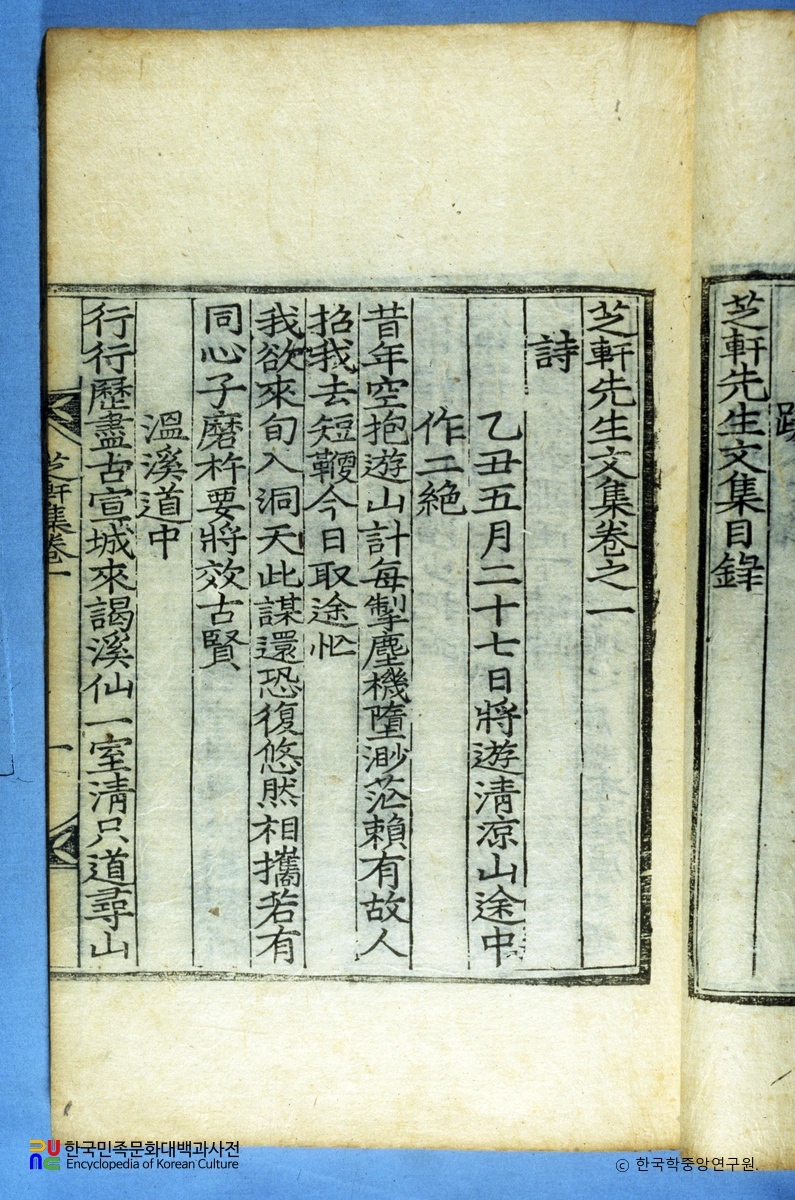 芝軒先生文集目錄
芝軒先生文集卷之一
詩
乙丑五月二十七日將遊淸凉山途中
作二絶
昔年空抱遊山計每掣塵機墮渺茫賴有故人
招我去短鞭今日取途忙
我欲來旬入洞天此謀還恐復悠然相攜若有
同心子磨杵要將效古賢
溫溪道中
行行歷盡古宣城來謁溪仙一室淸只道尋山
芝軒集卷一
一
한국민족문화대백과사전
Encyclopedia of Korean Culture
© 한국학중앙연구원.